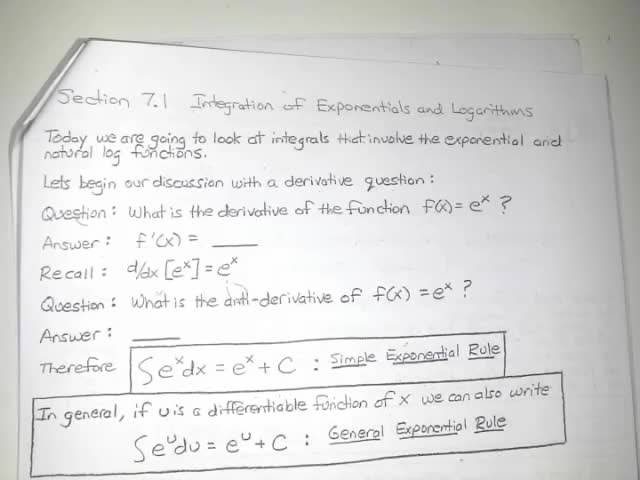 Section 7.1 Integration of Exponentials and Logarithms
Today we are going to look at integrals that involve the exponential and
natural log functions.
Lets begin our discussion with a derivative question:
Question: What is the derivative of the function f(x) = eˣ ?
Answer: f'(x) = ____
Recall: d/dx [eˣ] = eˣ
Question: What is the anti-derivative of f(x) = eˣ ?
Answer: ____
Therefore ∫eˣdx = eˣ + C : Simple Exponential Rule
In general, if u is a differentiable function of x we can also write
∫eᵘdu = eᵘ + C : General Exponential Rule